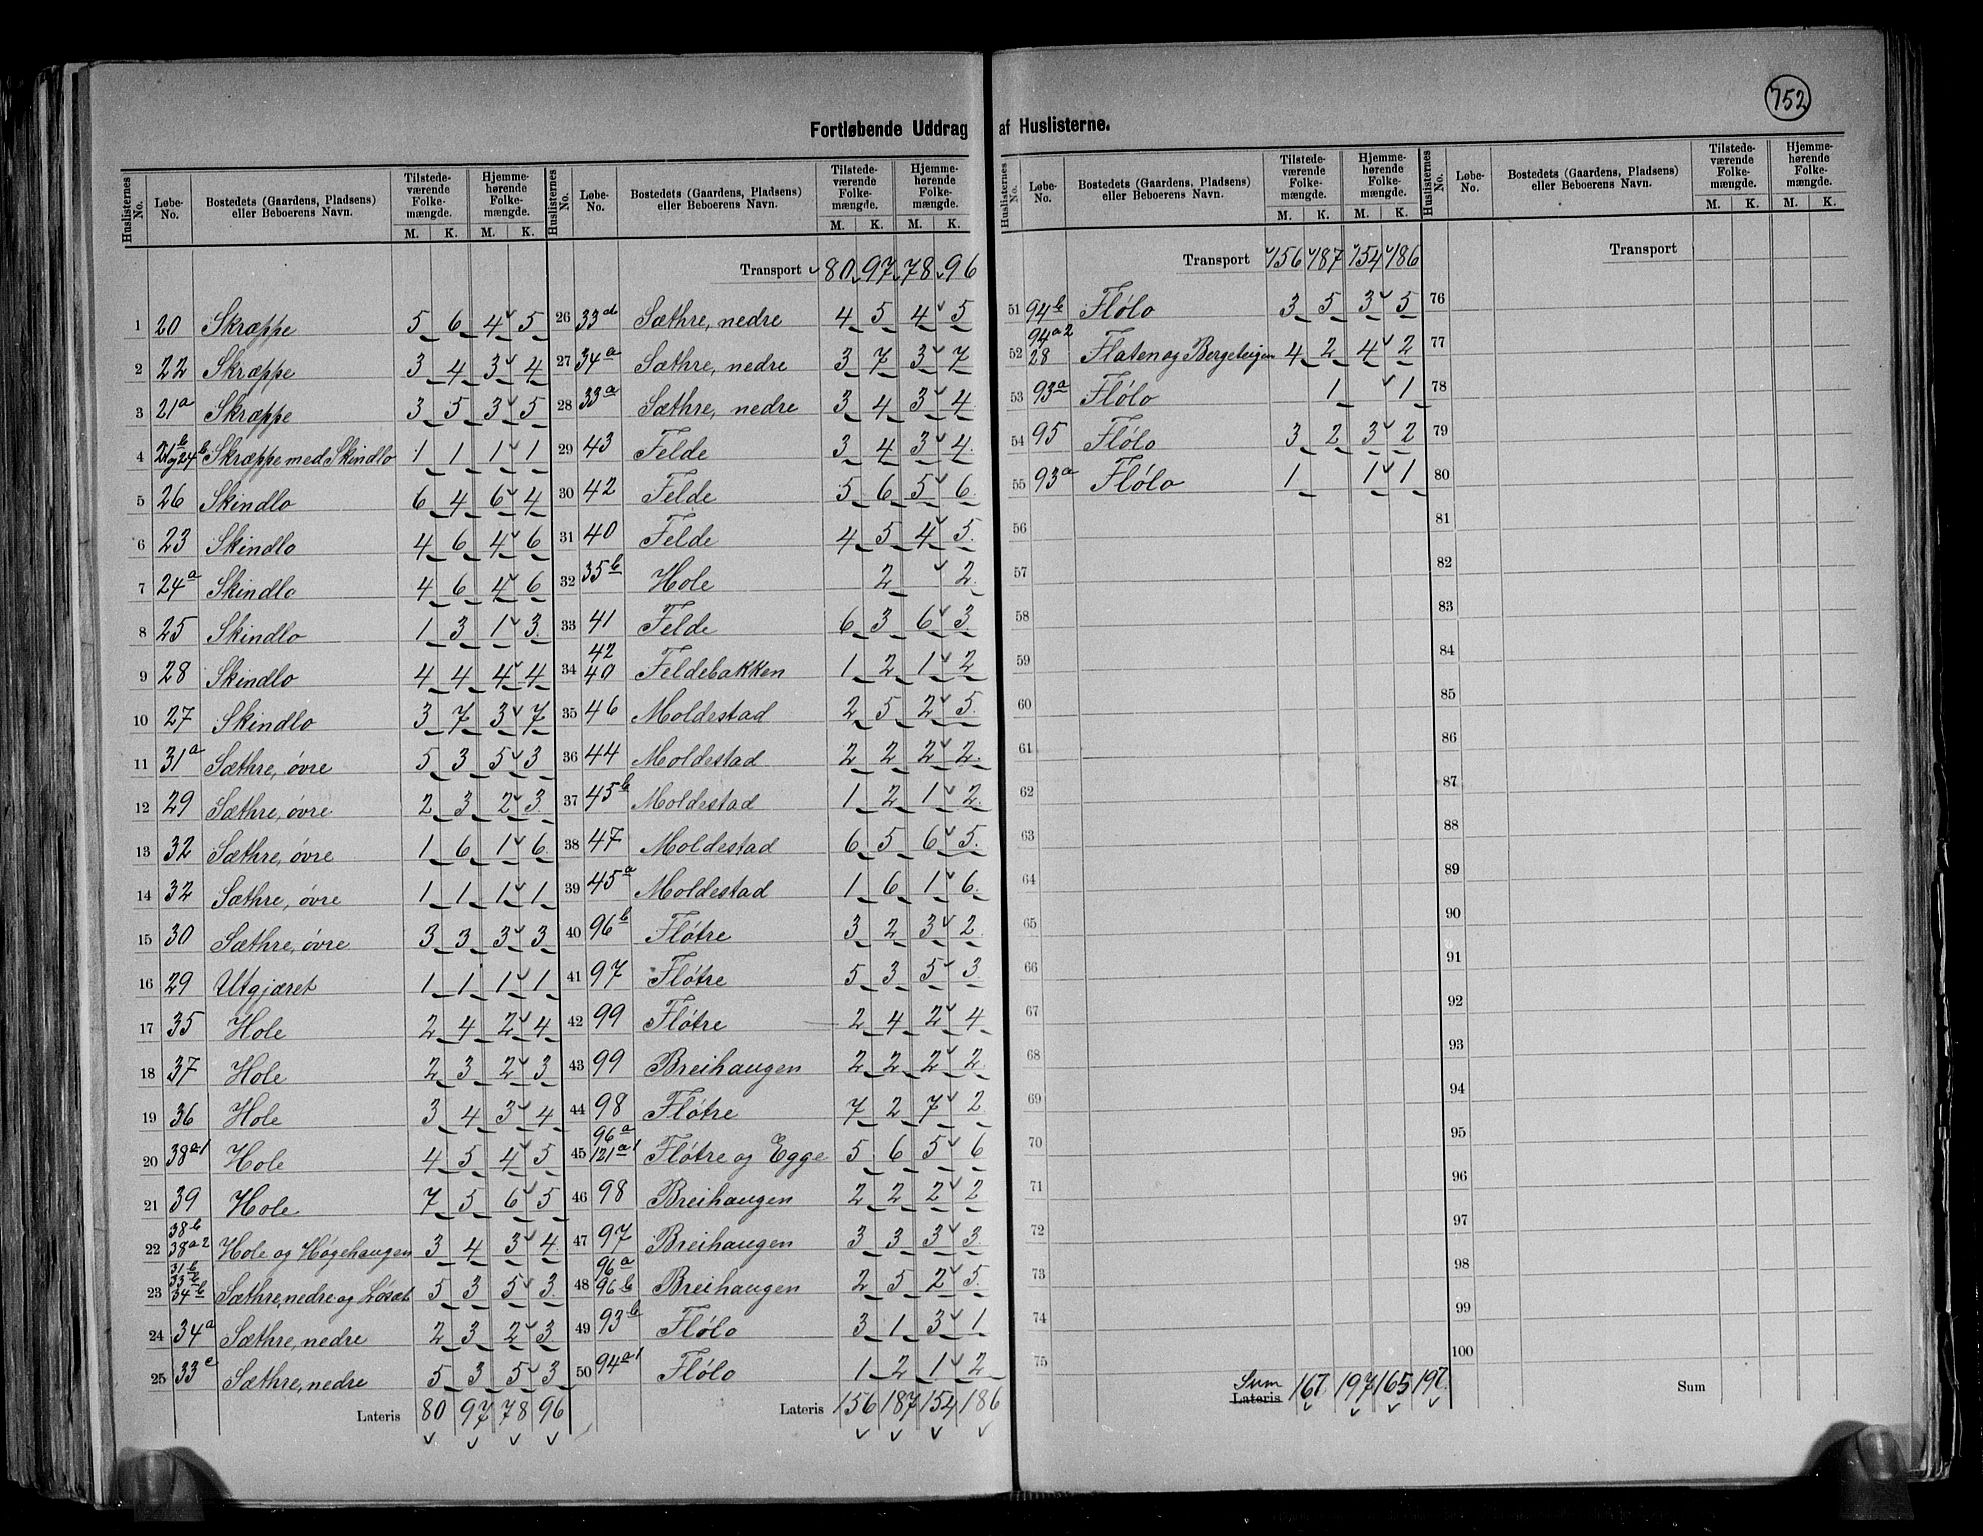 752
Fortløbende Uddrag af Huslisterne.
Huslisternes No. Løbe-No. Bostedets (Gaardens, Pladsens) eller Beboerens Navn. Tilstedeværende Folkemængde. M. K. Hjemmehørende Folkemængde. M. K.
1 20 Skræppe 5 6 4 5
2 22 Skræppe 3 4 3 4
3 21a Skræppe 3 5 3 5
4 21b og 24b Skræppe med Skindlo 1 1 1 1
5 26 Skindlo 6 4 6 4
6 23 Skindlo 4 6 4 6
7 24a Skindlo 4 6 4 6
8 25 Skindlo 1 3 1 3
9 28 Skindlo 4 4 4 4
10 27 Skindlo 3 7 3 7
11 31a Sæthre, øvre 5 3 5 3
12 29 Sæthre, øvre 2 3 2 3
13 32 Sæthre, øvre 1 6 1 6
14 32 Sæthre, øvre 1 1 1 1
15 30 Sæthre, øvre 3 3 3 3
16 29 Utgjæret 1 1 1 1
17 35 Hole 2 4 2 4
18 37 Hole 2 3 2 3
19 36 Hole 3 4 3 4
20 38a1 Hole 4 5 4 5
21 39 Hole 7 5 6 5
22 38b 38a2 Hole og Høgehaugen 3 4 3 4
23 31b 33b 34b Sæthre, nedre og Løsæt 5 3 5 3
24 34a Sæthre, nedre 2 3 2 3
25 33c Sæthre, nedre 5 3 5 3
Lateris 80 97 78 96
Huslisternes No. Løbe-No. Bostedets (Gaardens, Pladsens) eller Beboerens Navn. Tilstedeværende Folkemængde. M. K. Hjemmehørende Folkemængde. M. K.
Transport 80 97 78 96
26 33d Sæthre, nedre 4 5 4 5
27 34a Sæthre, nedre 3 7 3 7
28 33a Sæthre, nedre 3 4 3 4
29 43 Felde 3 4 3 4
30 42 Felde 5 6 5 6
31 40 Felde 4 5 4 5
32 35b Hole 2 2
33 41 Felde 6 3 6 3
34 42 40 Feldebakken 1 2 1 2
35 46 Moldestad 2 5 2 5
36 44 Moldestad 2 2 2 2
37 45b Moldestad 1 2 1 2
38 47 Moldestad 6 5 6 5
39 45a Moldestad 1 6 1 6
40 96b Fløtre 3 2 3 2
41 97 Fløtre 5 3 5 3
42 99 Fløtre 2 4 2 4
43 99 Breihaugen 2 2 2 2
44 98 Fløtre 7 2 7 2
45 96a 121a1 Fløtre og Egge 5 6 5 6
46 98 Breihaugen 2 2 2 2
47 97 Breihaugen 3 3 3 3
48 96a 96b Breihaugen 2 5 2 5
49 93b Flólo 3 1 3 1
50 94a1 Flólo 1 2 1 2
Lateris 156 187 154 186
Huslisternes No. Løbe-No. Bostedets (Gaardens, Pladsens) eller Beboerens Navn. Tilstedeværende Folkemængde. M. K. Hjemmehørende Folkemængde. M. K.
Transport 156 187 154 186
51 94b Flólo 3 5 3 5
52 94a2 28 Flaten og Bergeteigen 4 2 4 2
53 93a Flólo 1 1
54 95 Flólo 3 2 3 2
55 93a Flólo 1 1 1
56
57
58
59
60
61
62
63
64
65
66
67
68
69
70
71
72
73
74
75
Sum Lateris 167 197 165 197
Huslisternes No. Løbe-No. Bostedets (Gaardens, Pladsens) eller Beboerens Navn. Tilstedeværende Folkemængde. M. K. Hjemmehørende Folkemængde. M. K.
Transport
76
77
78
79
80
81
82
83
84
85
86
87
88
89
90
91
92
93
94
95
96
97
98
99
100
Sum